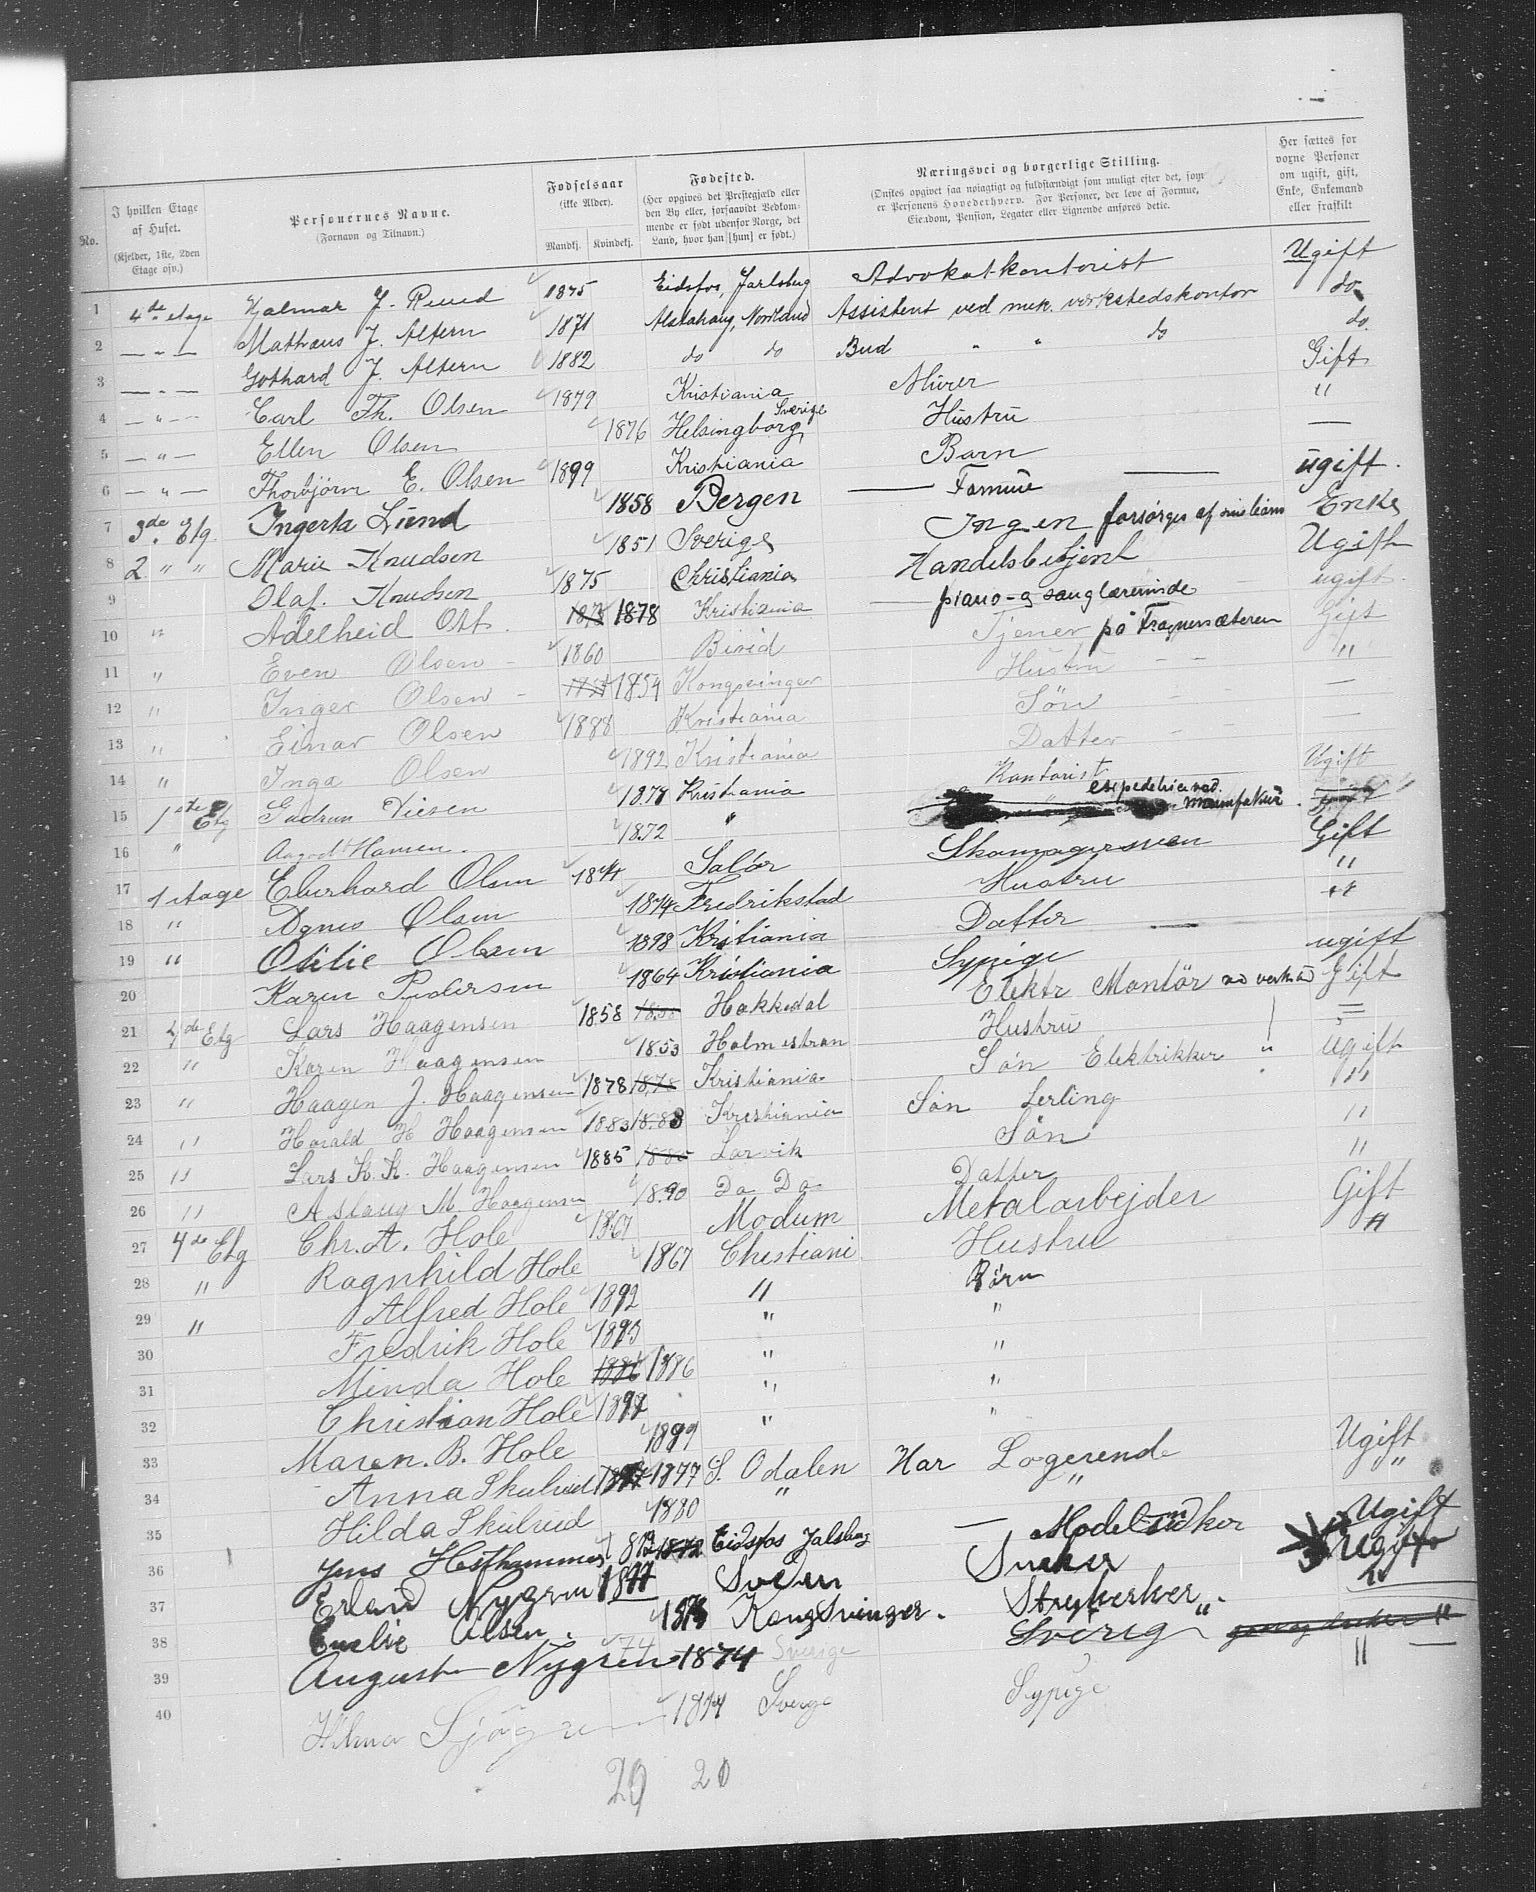 No.
I hvilken Etage af Huset. (Kjelder, 1ste, 2den Etage osv.)
Personernes Navne. (Fornavn og Tilnavn.)
Fødselsaar (ikke Alder). Mandkj. Kvindekj.
Fødested. (Her opgives det Prestegjæld eller den By eller, forsaavidt Bedkommende er født udenfor Norge, det Land, hvor han [hun] er født.)
Næringsvei og borgerlige Stilling. (Ønskes opgivet saa nøiagtigt og fuldstændigt som muligt efter det, som er Personens Hovederhverv. For Personer, der leve af Formue, Eiendom, Pension, Legater eller Lignende anføres dette.
Her sættes for voxne Personer om ugift, gift, Enke, Enkemand eller fraskilt
1 4de etage Hjalmar J. Ruud 1875 Eidsfos, Jarlsberg Advokatkontorist Ugift
2 — " — Mathæus J. Altern 1871 Alstahaug, Nordland Assistent ved mek. verkstedskontor do
3 — " — Gothard J. Altern 1882 do do Bud " " do do
4 — " — Carl Th. Olsen 1879 Kristiania Murer Gift
5 — " — Ellen Olsen 1876 Helsingborg Sverige Hustru "
6 — " — Thorbjörn E. Olsen 1899 Kristiania Barn —
7 3de Etg. Ingerta Lund 1858 Bergen — Formue — ugift.
8 2 " " Marie Knudsen 1851 Sverige Ingen forsørges af Enke
9 Olaf. Knudsen 1875 Christiania Handelsbetjent Ugift
10 " Adelheid Ott 1878 Kristiania piano- og sanglærerinde ugift.
11 " Even Olsen 1860 Birid Tjener på Frognersæteren Gift
12 " Inger Olsen 1854 Kongsvinger Hustru "
13 " Einar Olsen 1888 Kristiania Søn —
14 " Inga Olsen 1892 Kristiania Datter —
15 1ste Etg Gudrun 1878 Kristiania Kontorist Ugift
16 " Hansen. 1872 " manufaktur
17 1 etage Eberhard Olsen Solør Skomagersven Gift
18 " Agnes Olsen 1874 Fredrikstad Hustru "
19 " Otilie Olsen 1898 Kristiania Datter "
20 Karen Pedersen 1864 Kristiania Sypige ugift
21 4de Etg Lars Haagensen 1858 Hakkedal Elektr Montör Gift
22 " Karen Haagensen 1853 Holmestran Hustru =
23 " Haagen J. Haagensen 1878 Kristiania Søn Elektrikker " Ugift
24 " Harald H Haagensen 1883 1883 Kristiania Søn Lerling "
25 " Lars K. K. Haagensen 1885 Larvik Søn "
26 " Aslaug M Haagensen 1890 Do Do Datter "
27 4de Etg Chr. A. Hole 1867 Modum Metalarbejder Gift
28 " Ragnhild Hole 1867 Christiani Hustru "
29 " Alfred Hole 1892 " Børn
30 Fredrik Hole 1893 " "
31 Minda Hole 1886 1886 " "
32 Christian Hole 1897 " "
33 Maren. B. Hole 1899 " "
34 Anna Skulrud 1877 S. Odalen Har Logerende Ugift
35 Hilda Skulrud 1880 " " "
36 Jens 1872 Eidsfos Jalsberg — Modelsnedker Ugift
37 Erland Nygren Sveden Sneker Ugift
38 Emelie Olsen. Kongsvinger. "
39 Auguste Nygren 1874 Sverige "
40 Hilma 1874 Sverge Sypige
20 20